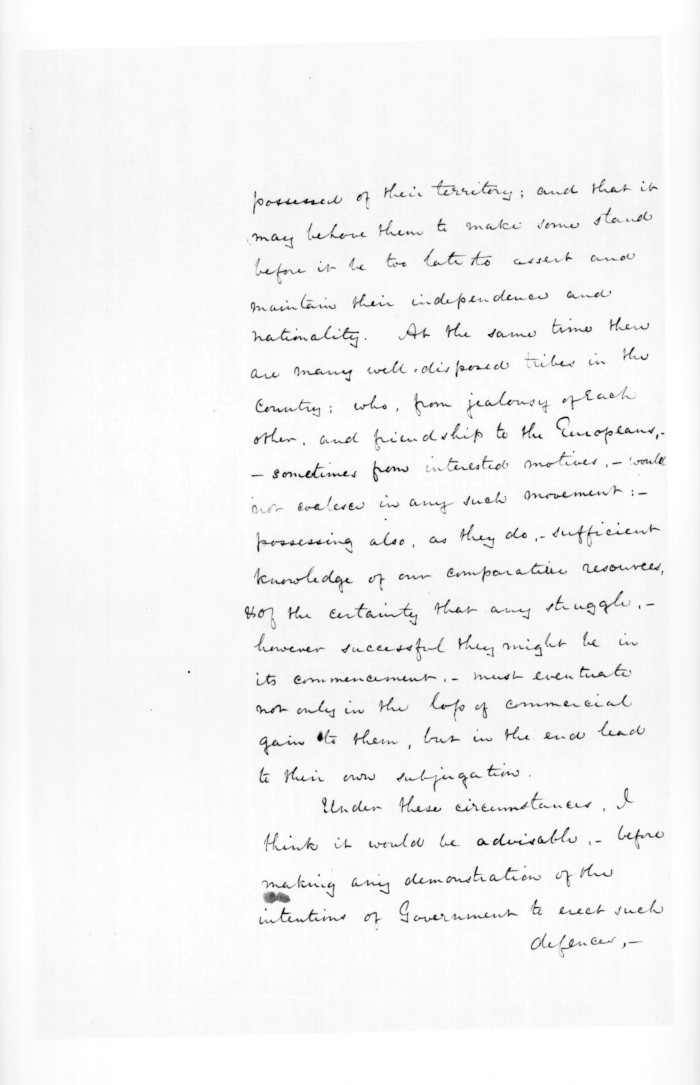 possessed of their territory; and that it
may behove them to make some stand
before it be too late to assert and
maintain their independence and
nationality. At the same time there
are many well-disposed tribes in the
Country; who, from jealousy of each
other, and friendship to the Europeans, -
- sometimes from interested motives, - would
not coalesce in any such movement: -
possessing also, as they do, - sufficient
knowledge of our comparative resources,
& of the certainty that any struggle, -
however successful they might be in
its commencement, - must eventuate
not only in the loss of commercial
gain to them, but in the end lead
to their own subjugation.
Under these circumstances, I
think it would be advisable, - before
making any demonstration of the
intentions of Government to erect such
defences, -